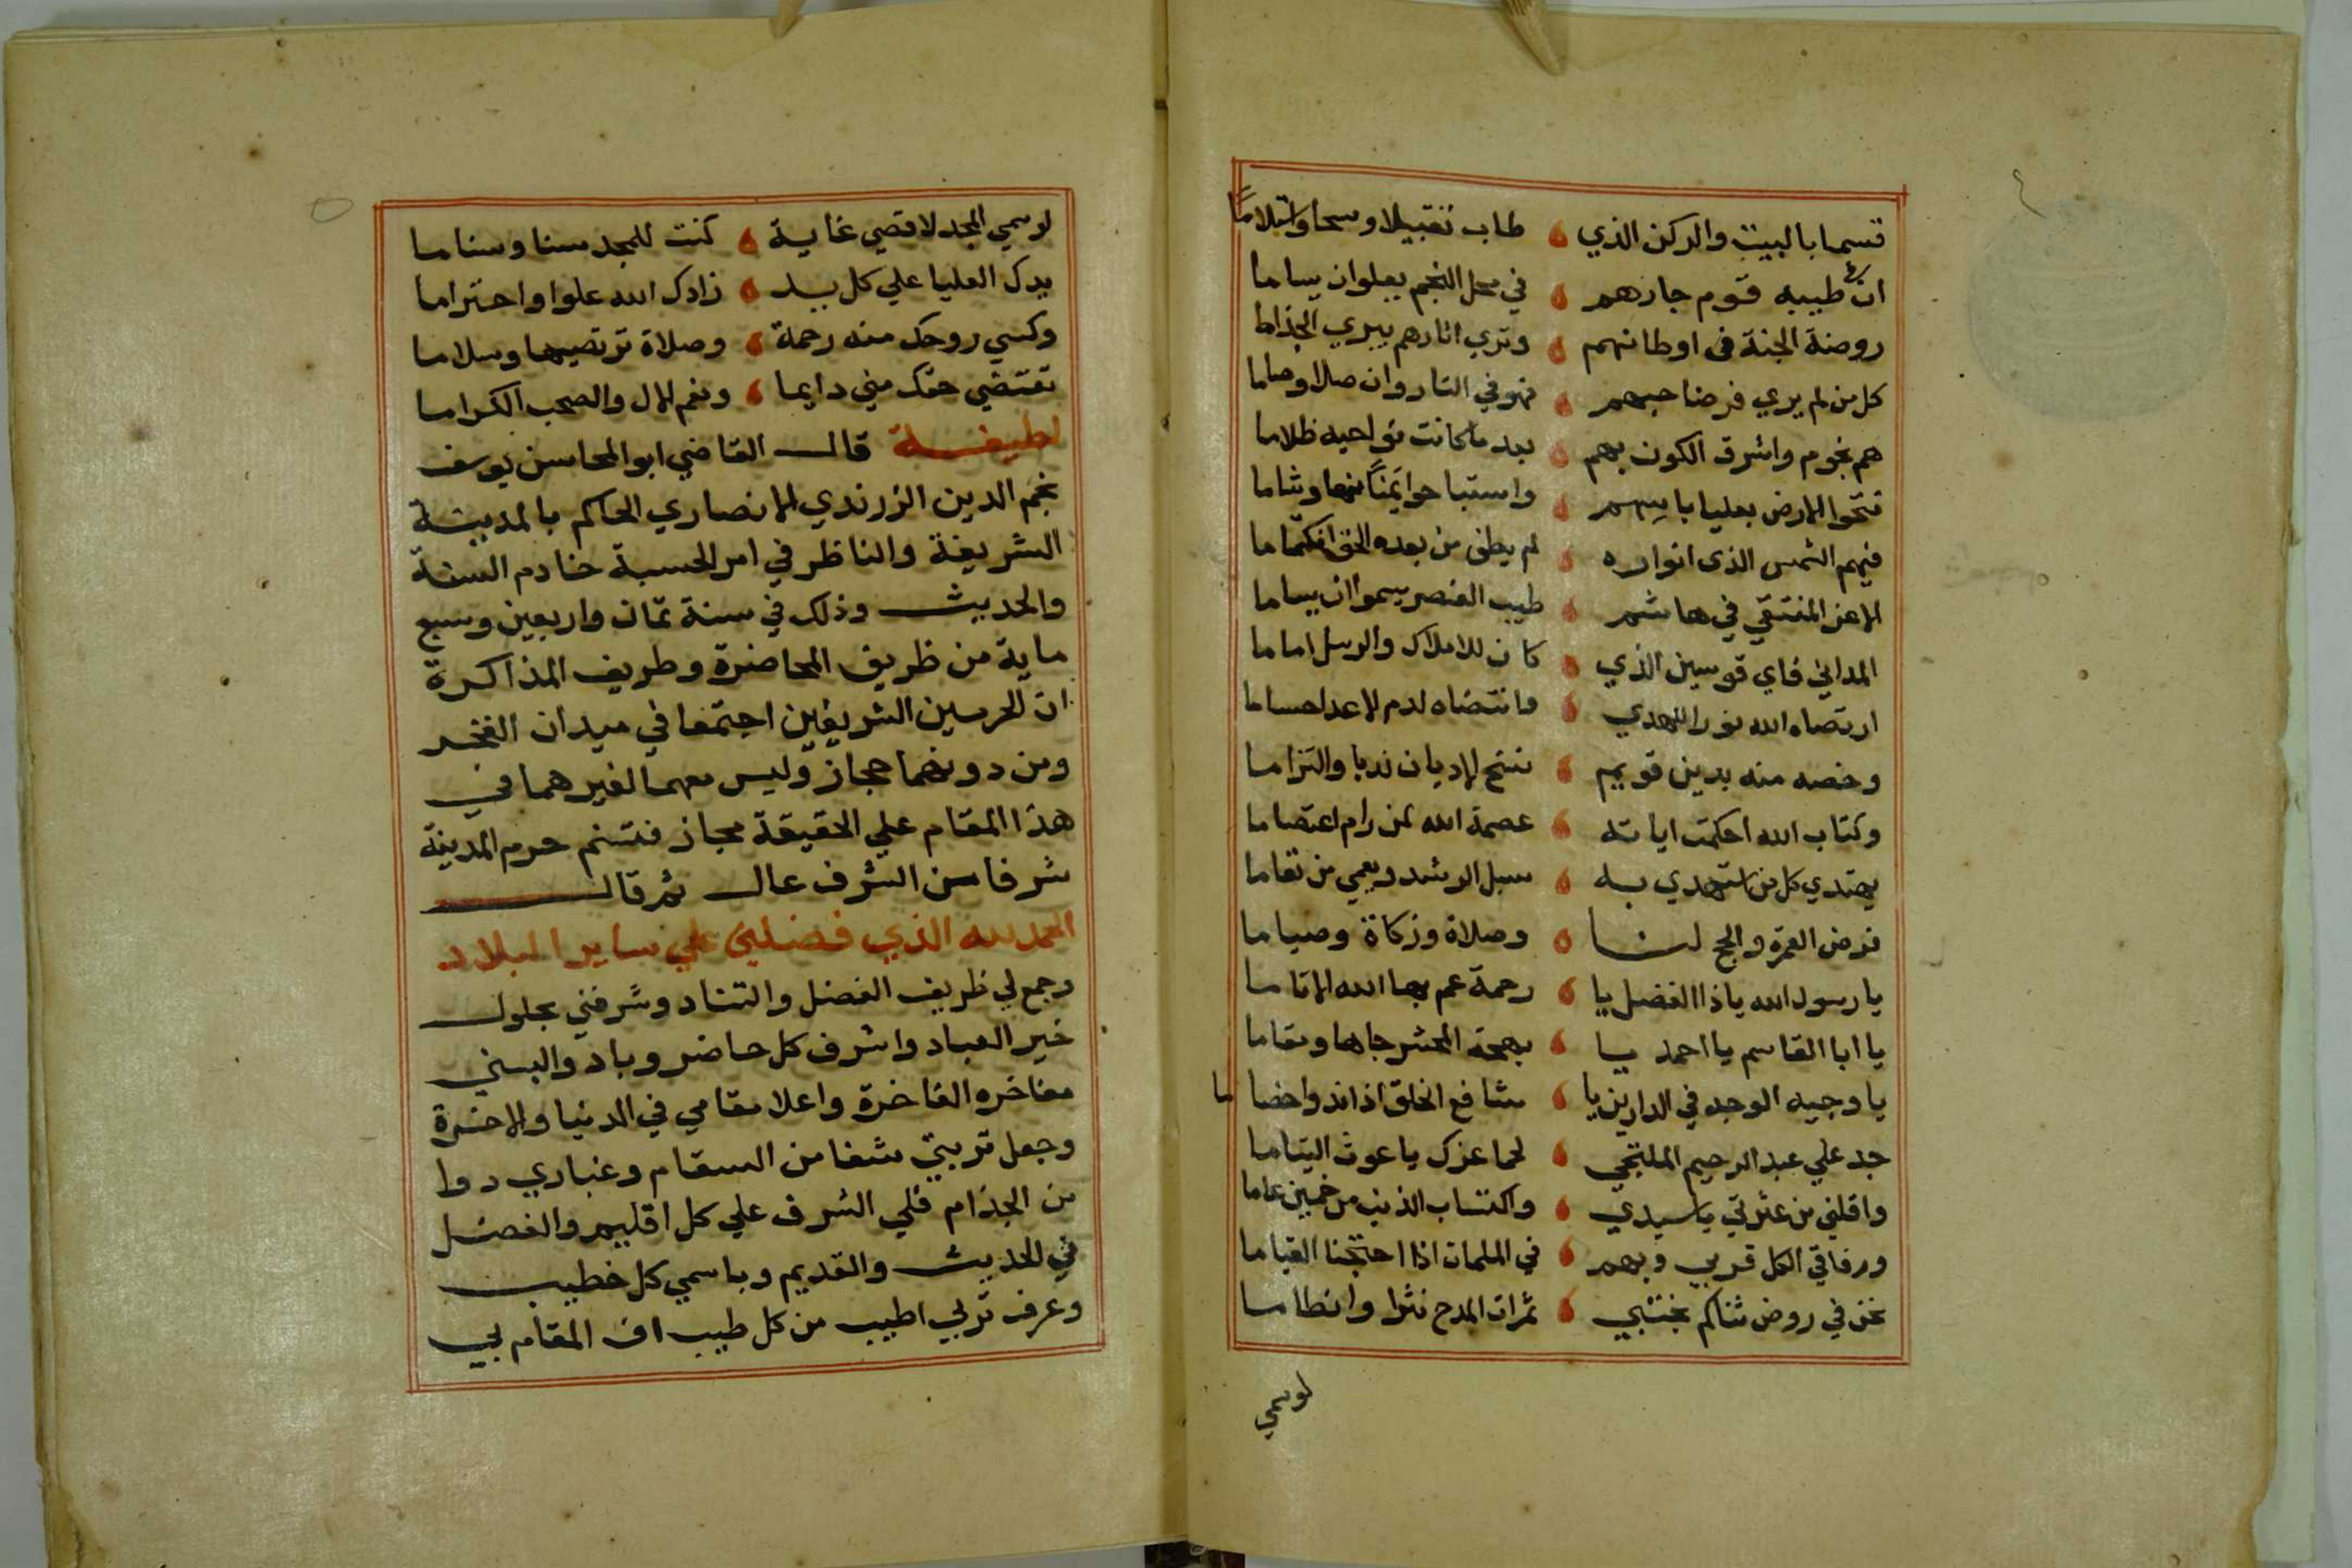 ٤
قسما بالبيت والركن الذي طاب تقبيلا ومسحا واستلاما
ان في طيبه قوم جارهم في محل النجم يعلوان يساما
روضة الجنة في اوطانهم وتري اثارهم يبري الجذاما
كل من لم يري فرضا حبهم فهو في النار وان صلا وصاما
هم نجوم واشرق الكون بهم بعد ما كانت نواحيه ظلاما
فتحوا الارض بعليا باسهم واستباحوا يمنا منها وشاما
فيهم الشمس الذي انواره لم يطق من بعده الحق انكتاما
الاعز المنتقي في هاشم طيب العنصر يسموا ان يساما
المداني قاي قوسين الذي كان للاملاك والرسل اماما
ارتضاه الله نورا للهدي وانتضاه لدم الاعدا حساما
وخصه منه بدين قويم نسخ الاديان ندبا والتزاما
وكتاب الله احكمت اياته عصمة الله لمن رام اعتصاما
يهتدي كل من استهدي به سبل الرشد ويعمي من تعاما
فرض العمرة والحج لنا وصلاة وزكاة وصياما
يا رسول الله يا ذا الفضل يا رحمة عم بها الله الاناما
يا ابا القاسم يا احمد يا بهجة المحشر جاها ومقاما
يا وجيه الوجه في الدارين يا شافع الخلق اذا اندوا خصاما
جد علي عبد الرحيم الملتجي لحما عزك يا غوث اليتاما
واقلني من عثرتي يا سيدي واكتساب الذنب من خمسين عاما
ورفاقي الكل قربي وبهم في الملمات اذا احتجنا القياما
نحن في روض ثناكم نجتبي ثمرات المدح نثرا وانظاما
لوسمي
٥
لوسمي المجد لاقصي غاية كنت للمجد سنا وسناما
يدك العليا علي كل يد زادك الله علوا واحتراما
وكسي روحك منه رحمة وصلاة ترتضيها وسلاما
تقتضي حقك مني دايما وتعم الال والصحب الكراما
لطيفة قال القاضي ابو المحاسن يوسف
نجم الدين الزرندي الانصاري الحاكم بالمدينة
الشريفة والناظر في امر الحسبة خادم السنة
والحديث وذلك في سنة ثمان واربعين وسبع
ماية من ظريف المحاضرة وطريف المذاكرة
ان الحرمين الشريفين اجتمعا في ميدان الفخر
ومن دونهما حجاز وليس معهما لغيرهما في
هذا المقام علي الحقيقة مجاز فتسنم حرم المدينة
شرفا من الشرف عال ثم قال
الحمد لله الذي فضلني علي ساير البلاد
وجمع لي ظريف الفضل والتناد وشرفني بحلول
خير العباد واشرف كل حاضر وباد والبسني
مفاخره الفاخرة واعلا مقامي في الدنيا والاخرة
وجعل تربتي شفا من السقام وغباري دوا
من الجذام فلي الشرف علي كل اقليم والفضل
في الحديث والقديم وباسمي كل خطيب
وعرف تربي اطيب من كل طيب اف المقام لي